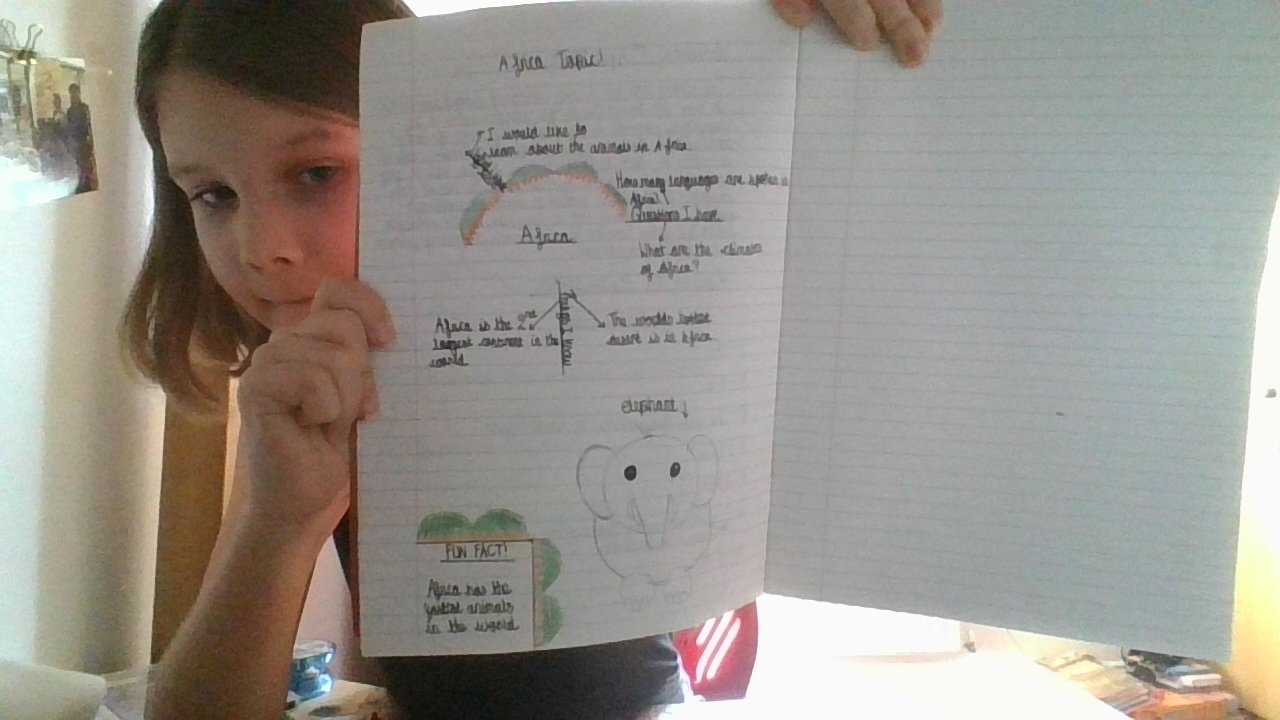 Africa Topic!
I would like to
learn about the animals in Africa
How many languages are spoken in
Africa?
Questions I have
Africa
What are the climates
of Africa?
Things I know
Africa is the 2nd
largest continent in the
world
The worlds hottest
desert is in Africa
elephant
FUN FACT!
Africa has the
fastest animals
in the world